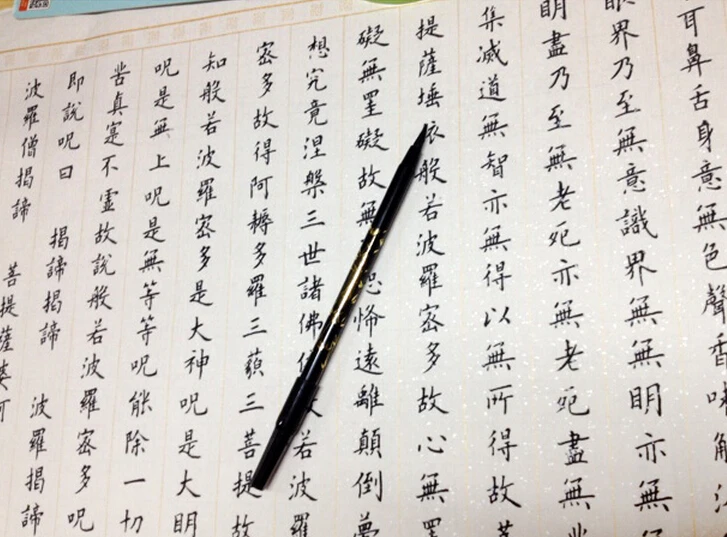 耳鼻舌身意無色聲香味
眼界乃至無意識界無無明亦無
明盡乃至無老死亦無老死盡無
集滅道無智亦無得以無所得故
提薩埵依般若波羅密多故心無罣
礙無罣礙故無恐怖遠離顛倒夢
想究竟涅槃三世諸佛依若波羅
密多故得阿耨多羅三藐三菩提故
知般若波羅密多是大神呪是大明
呪是無上呪是無等等呪能除一切
苦真寔不虛故說般若波羅密多呪
即說呪曰 揭諦揭諦 波羅揭諦
波羅僧揭諦 菩提薩婆訶